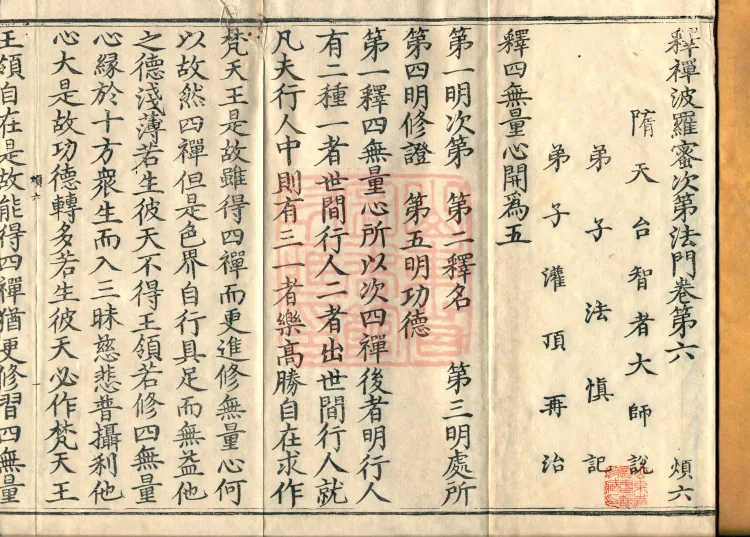 釋禪波羅蜜次第法門卷第六 煩六
隋天台智者大師說
弟子法慎記
弟子灌頂再治
釋四無量心開為五
第一明次第 第二釋名 第三明處所
第四明修證 第五明功德
第一釋四無量心所以次四禪後者明行人
有二種一者世間行人二者出世間行人就
凡夫行人中則有三一者樂高勝自在求作
梵天王是故雖得四禪而更進修無量心何
以故然四禪但是色界自行具足而無益他
之德淺薄若生彼天不得王領若修四無量
心緣於十方眾生而入三昧慈悲普攝利他
心大是故功德轉多若生彼天必作梵天王
煩六
王領自在是故能得四禪猶更修習四無量